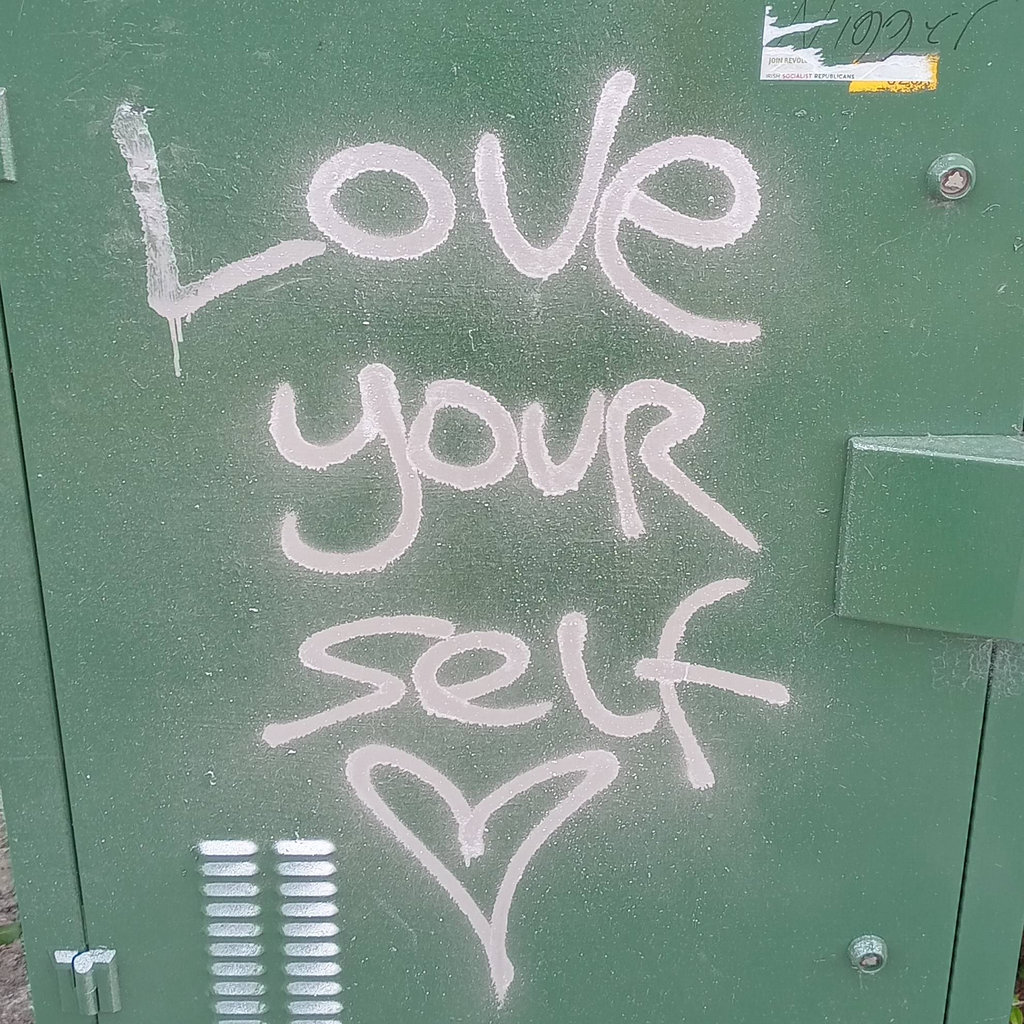 Nigger
JOIN REVOL
IRISH SOCIALIST REPUBLICANS
Love
youR
self